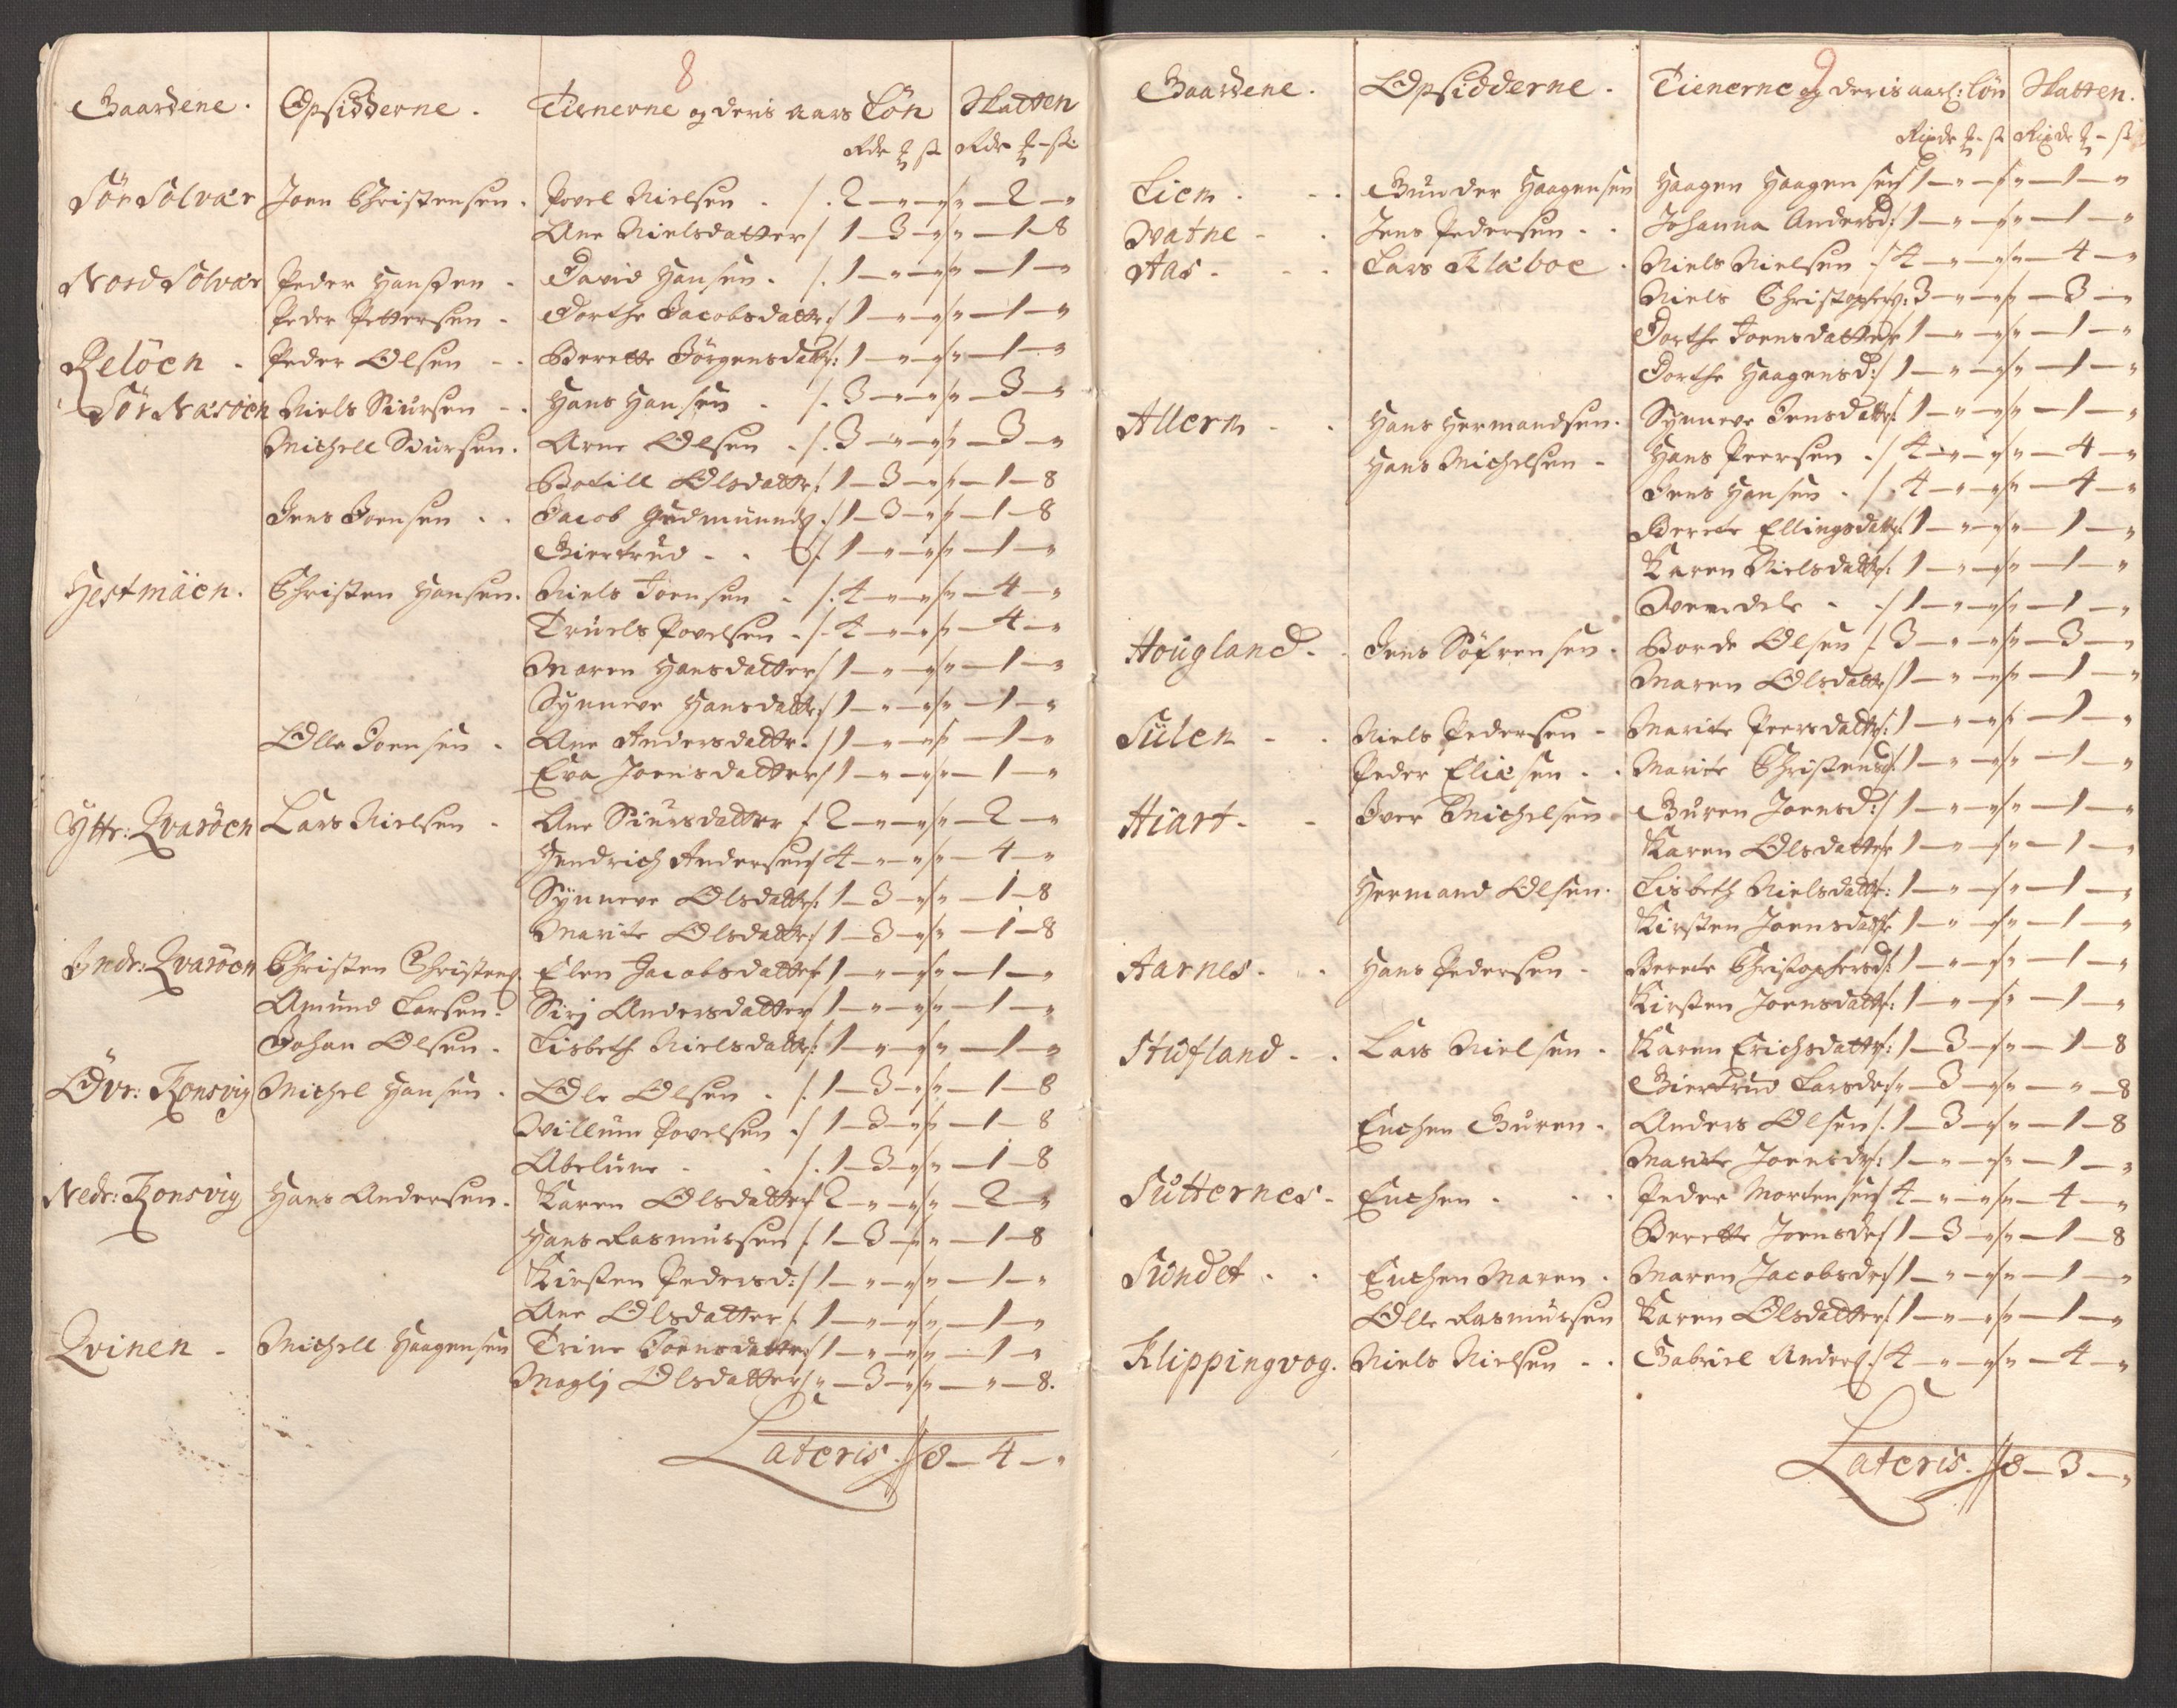 8
Gaardene. Opsidderne. Tienerne og deris aars Løn Skatten
Rdr ₰ sk Rdr ₰ sk:
Sör Solvær Joen Christensen. Povel Nielsen . /. 2 — " — " /" — 2 — "
Ane Nielsdatter / 1 — 3 — " /" — 1 — 8
Nord Solvær Peder Hansen . David Hansen . /. 1 — " — " /" — 1 — "
Peder Pettersen . Dorthe Jacobsdattr: / 1 — " — " /" — 1 — "
Relöen . Peder Olsen . . Berette Jörgensdattr: 1 — " — " /" — 1 — "
Sör Næsöen Niels Siursen . . Hans Hansen . /. 3 — " — " /" — 3 — "
Michell Siursen. Arne Olsen . /. 3 — " — " /" — 3 — "
Botill Olsdattr: 1 — 3 — " /" — 1 — 8
Jens Joensen . . Jacob Gudmunds: / 1 — 3 — " /" — 1 — 8
Giertrud . . /. 1 — " — " /" — 1 — "
Hestmäen. Christen Hansen. Niels Joensen . /. 4 — " — " /" — 4 — "
Truels Povelsen . /. 4 — " — " /" — 4 — "
Maren Hansdatter / 1 — " — " /" — 1 — "
Synneve Hansdattr: / 1 — " — " /" — 1 — "
Olle Joensen . Ane Andersdattr. / 1 — " — " /" — 1 — "
Eva Joensdatter / 1 — " — " /" — 1 — "
Yttr: Qvaröen Lars Nielsen . Ane Siursdatter / 2 — " — " /" — 2 — "
Hendrich Andersen / 4 — " — " /" — 4 — "
Synneve Olsdattr: 1 — 3 — " /" — 1 — 8
Marite Olsdattr: / 1 — 3 — " /" — 1 — 8
Indr: Qvaröen Christen Christens: Elen Jacobsdatter 1 — " — " /" — 1 — "
Amund Larsen. Sirj Andersdatter 1 — " — " /" — 1 — "
Johan Olsen . Lisbeth Nielsdattr: 1 — " — " /" — 1 — "
Övr: Konsvig Michel Hansen . Ole Olsen . /. 1 — 3 — " /" — 1 — 8
Willum Povelsen ./ 1 — 3 — " /" — 1 — 8
Abelune . . /. 1 — 3 — " /" — 1 — 8
Nedr: Konsvig Hans Andersen. Karen Olsdatter 2 — " — " /" — 2 — "
Hans Rasmussen /. 1 — 3 — " /" — 1 — 8
Kirsten Pedersd: / 1 — " — " /" — 1 — "
Ane Olsdatter /. 1 — " — " /" — 1 — "
Qvinen . Michell Haagensen Trine Joensdatter / 1 — " — " /" — 1 — "
Maglj Olsdatter / " — 3 — " /" — " — 8.
Lateris. // 8 — 4 — "
9
Gaardene. Opsidderne. Tienerne og deris aarl: Løn Skatten.
Rixdr ₰ sk Rixdr ₰ sk
Liem . . . Gunder Haagensen Haagen Haagensen 1 — " — " /" — 1 — "
Watne . . Jens Pedersen . . Johanna Andersd: 1 — " — " /" — 1 — "
Aas . . . Lars Klæboe . Niels Nielsen ./ 4 — " — " /" — 4 — "
Niels Christophers: 3 — " — " /" — 3 — "
Dorthe Joensdatter 1 — " — " /" — 1 — "
Dorthe Haagensd: / 1 — " — " /" — 1 — "
Allern . . Hans Hermandsen. Synneve Jensdattr: 1 — " — " /" — 1 — "
Hans Michelsen . Hans Peersen ./ 4 — " — " /" — 4 — "
Jens Hansen . /. 4 — " — " /" — 4 — "
Berete Ellingsdattr: 1 — " — " /" — 1 — "
Karen Nielsdattr: 1 — " — " /" — 1 — "
. ./ 1 — " — " /" — 1 — "
Hougland . . Jens Söfrensen . Borde Olsen /. 3 — " — " /" — 3 — "
Maren Olsdattr / 1 — " — " /" — 1 — "
Sülen . . Niels Pedersen . Marite Peersdattr: 1 — " — " /" — 1 — "
Peder Eliæsen . . Marite Christensd: 1 — " — " /" — 1 — "
Hiart . . Iver Michelsen Guren Joensd: / 1 — " — " /" — 1 — "
Karen Olsdatter 1 — " — " /" — 1 — "
Hermand Olsen. Lisbeth Nielsdattr: 1 — " — " /" — 1 — "
Kirsten Joensdattr 1 — " — " /" — 1 — "
Aarnes . . Hans Pedersen . Berete Christophersd: 1 — " — " /" — 1 — "
Kirsten Joensdattr: 1 — " — " /" — 1 — "
Hufland . . Lars Nielsen . Karen Erichsdattr: 1 — 3 — " /" — 1 — 8
Giertrud Larsdr / " — 3 — " /" — " — 8
Enchen Guren . Anders Olsen /. 1 — 3 — " /" — 1 — 8
Marite Joensdr: 1 — " — " /" — 1 — "
Sutternes . Enchen . . . Peder Mortensen 4 — " — " /" — 4 — "
Berette Joensdr 1 — 3 — " /" — 1 — 8
Sundet . . Enchen Maren . Maren Jacobsdr 1 — " — " /" — 1 — "
Olle Rasmussen Karen Olsdatter 1 — " — " /" — 1 — "
Klippingvog. Niels Nielsen . . Gabriel Anders: / 4 — " — " /" — 4 — "
Lateris. // 8 — 3 — "